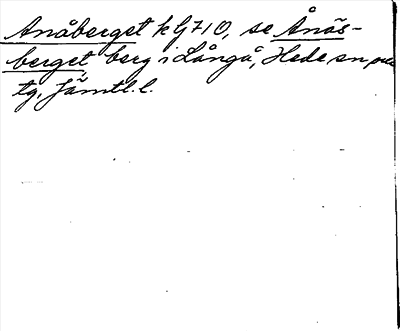 Anåberget k G710, se Ånäs-
berget berg i Långå, Hede sn, 
tg, Jämtl. l.